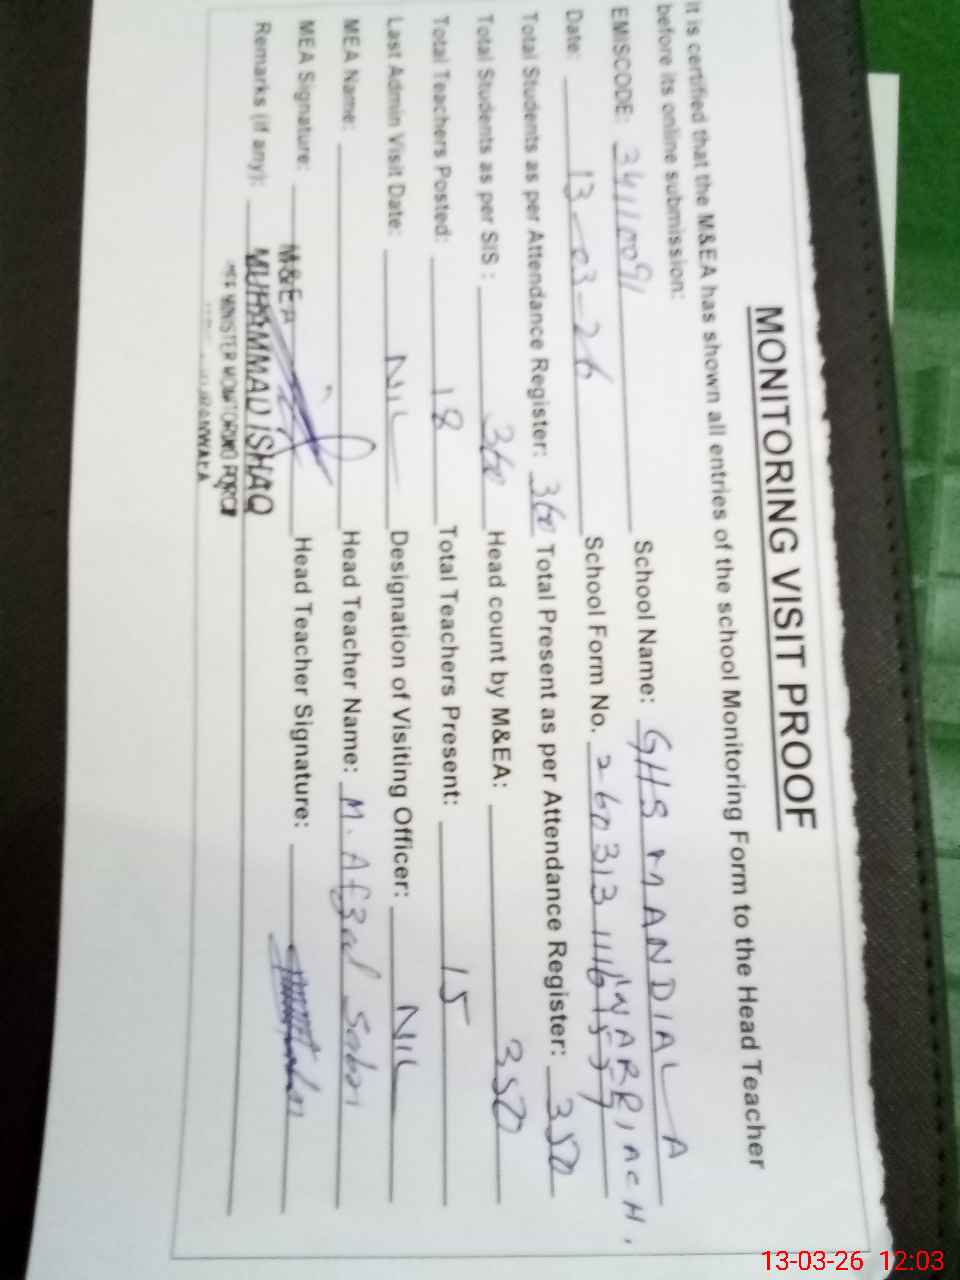 MONITORING VISIT PROOF
It is certified that the M&EA has shown all entries of the school Monitoring Form to the Head Teacher
before its online submission:
EMISCODE: 34111091 School Name: GHS MANDIALA
WARRIACH.
Date: 13-03-26 School Form No.
Total Students as per Attendance Register: 360 Total Present as per Attendance Register: 350
Total Students as per SIS : 360 Head count by M&EA: 350
Total Teachers Posted: 18 Total Teachers Present: 15
Last Admin Visit Date: NIL Designation of Visiting Officer: NIL
MEA Name: Head Teacher Name: M. Afzal Sabri
MEA Signature: Head Teacher Signature:
M&EA
Remarks (if any): MUHAMMAD ISHAQ
MINISTER MONITORING FORCE
13-03-26 12:03